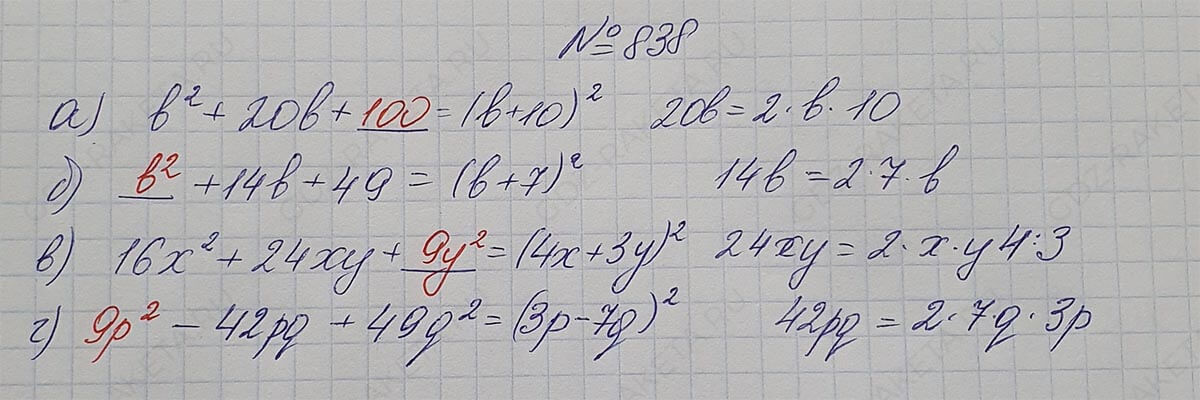 № 838
а) b² + 20b + 100 = (b+10)² 20b = 2·b·10
б) b² + 14b + 49 = (b+7)² 14b = 2·7·b
в) 16x² + 24xy + 9y² = (4x+3y)² 24xy = 2·x·y4·3
г) 9p² - 42pq + 49q² = (3p-7q)² 42pq = 2·7q·3p